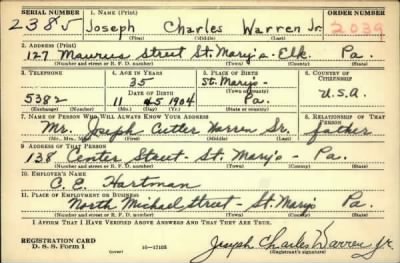 SERIAL NUMBER 1. NAME (Print) ORDER NUMBER
2385 Joseph Charles Warren Jr. 2039
(First) (Middle) (Last)
2. ADDRESS (Print)
127 Maurus Street St. Mary's - Elk. Pa.
(Number and street or R. F. D. number) (Town) (County) (State)
3. TELEPHONE 4. AGE IN YEARS 5. PLACE OF BIRTH 6. COUNTRY OF CITIZENSHIP
35 St. Mary's -
DATE OF BIRTH
5382 11 15 1904 Pa. U.S.A.
(Mo.) (Day) (Yr.) (State or country)
7. NAME OF PERSON WHO WILL ALWAYS KNOW YOUR ADDRESS 8. RELATIONSHIP OF THAT PERSON
Mr. Joseph Cutler Warren Sr. father
(Mr., Mrs., Miss) (First) (Middle) (Last)
9. ADDRESS OF THAT PERSON
138 Center Street - St. Mary's - Pa.
(Number and street or R. F. D. number) (Town) (County) (State)
10. EMPLOYER'S NAME
C. E. Hartman
11. PLACE OF EMPLOYMENT OR BUSINESS
North Michael Street - St. Mary's Pa.
(Number and street or R. F. D. number) (Town) (County) (State)
I AFFIRM THAT I HAVE VERIFIED ABOVE ANSWERS AND THAT THEY ARE TRUE.
REGISTRATION CARD
D. S. S. Form 1 16-17105 Joseph Charles Warren Jr.
(Registrant's signature)